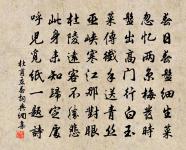 春日春盤細生菜
忽憶兩京梅發時
盤出高門行白玉
菜傳纖手送青絲
巫峽寒江那對眼
杜陵遠客不勝悲
此身未知歸定處
呼兒覓紙一題詩
杜甫立春詞典網集